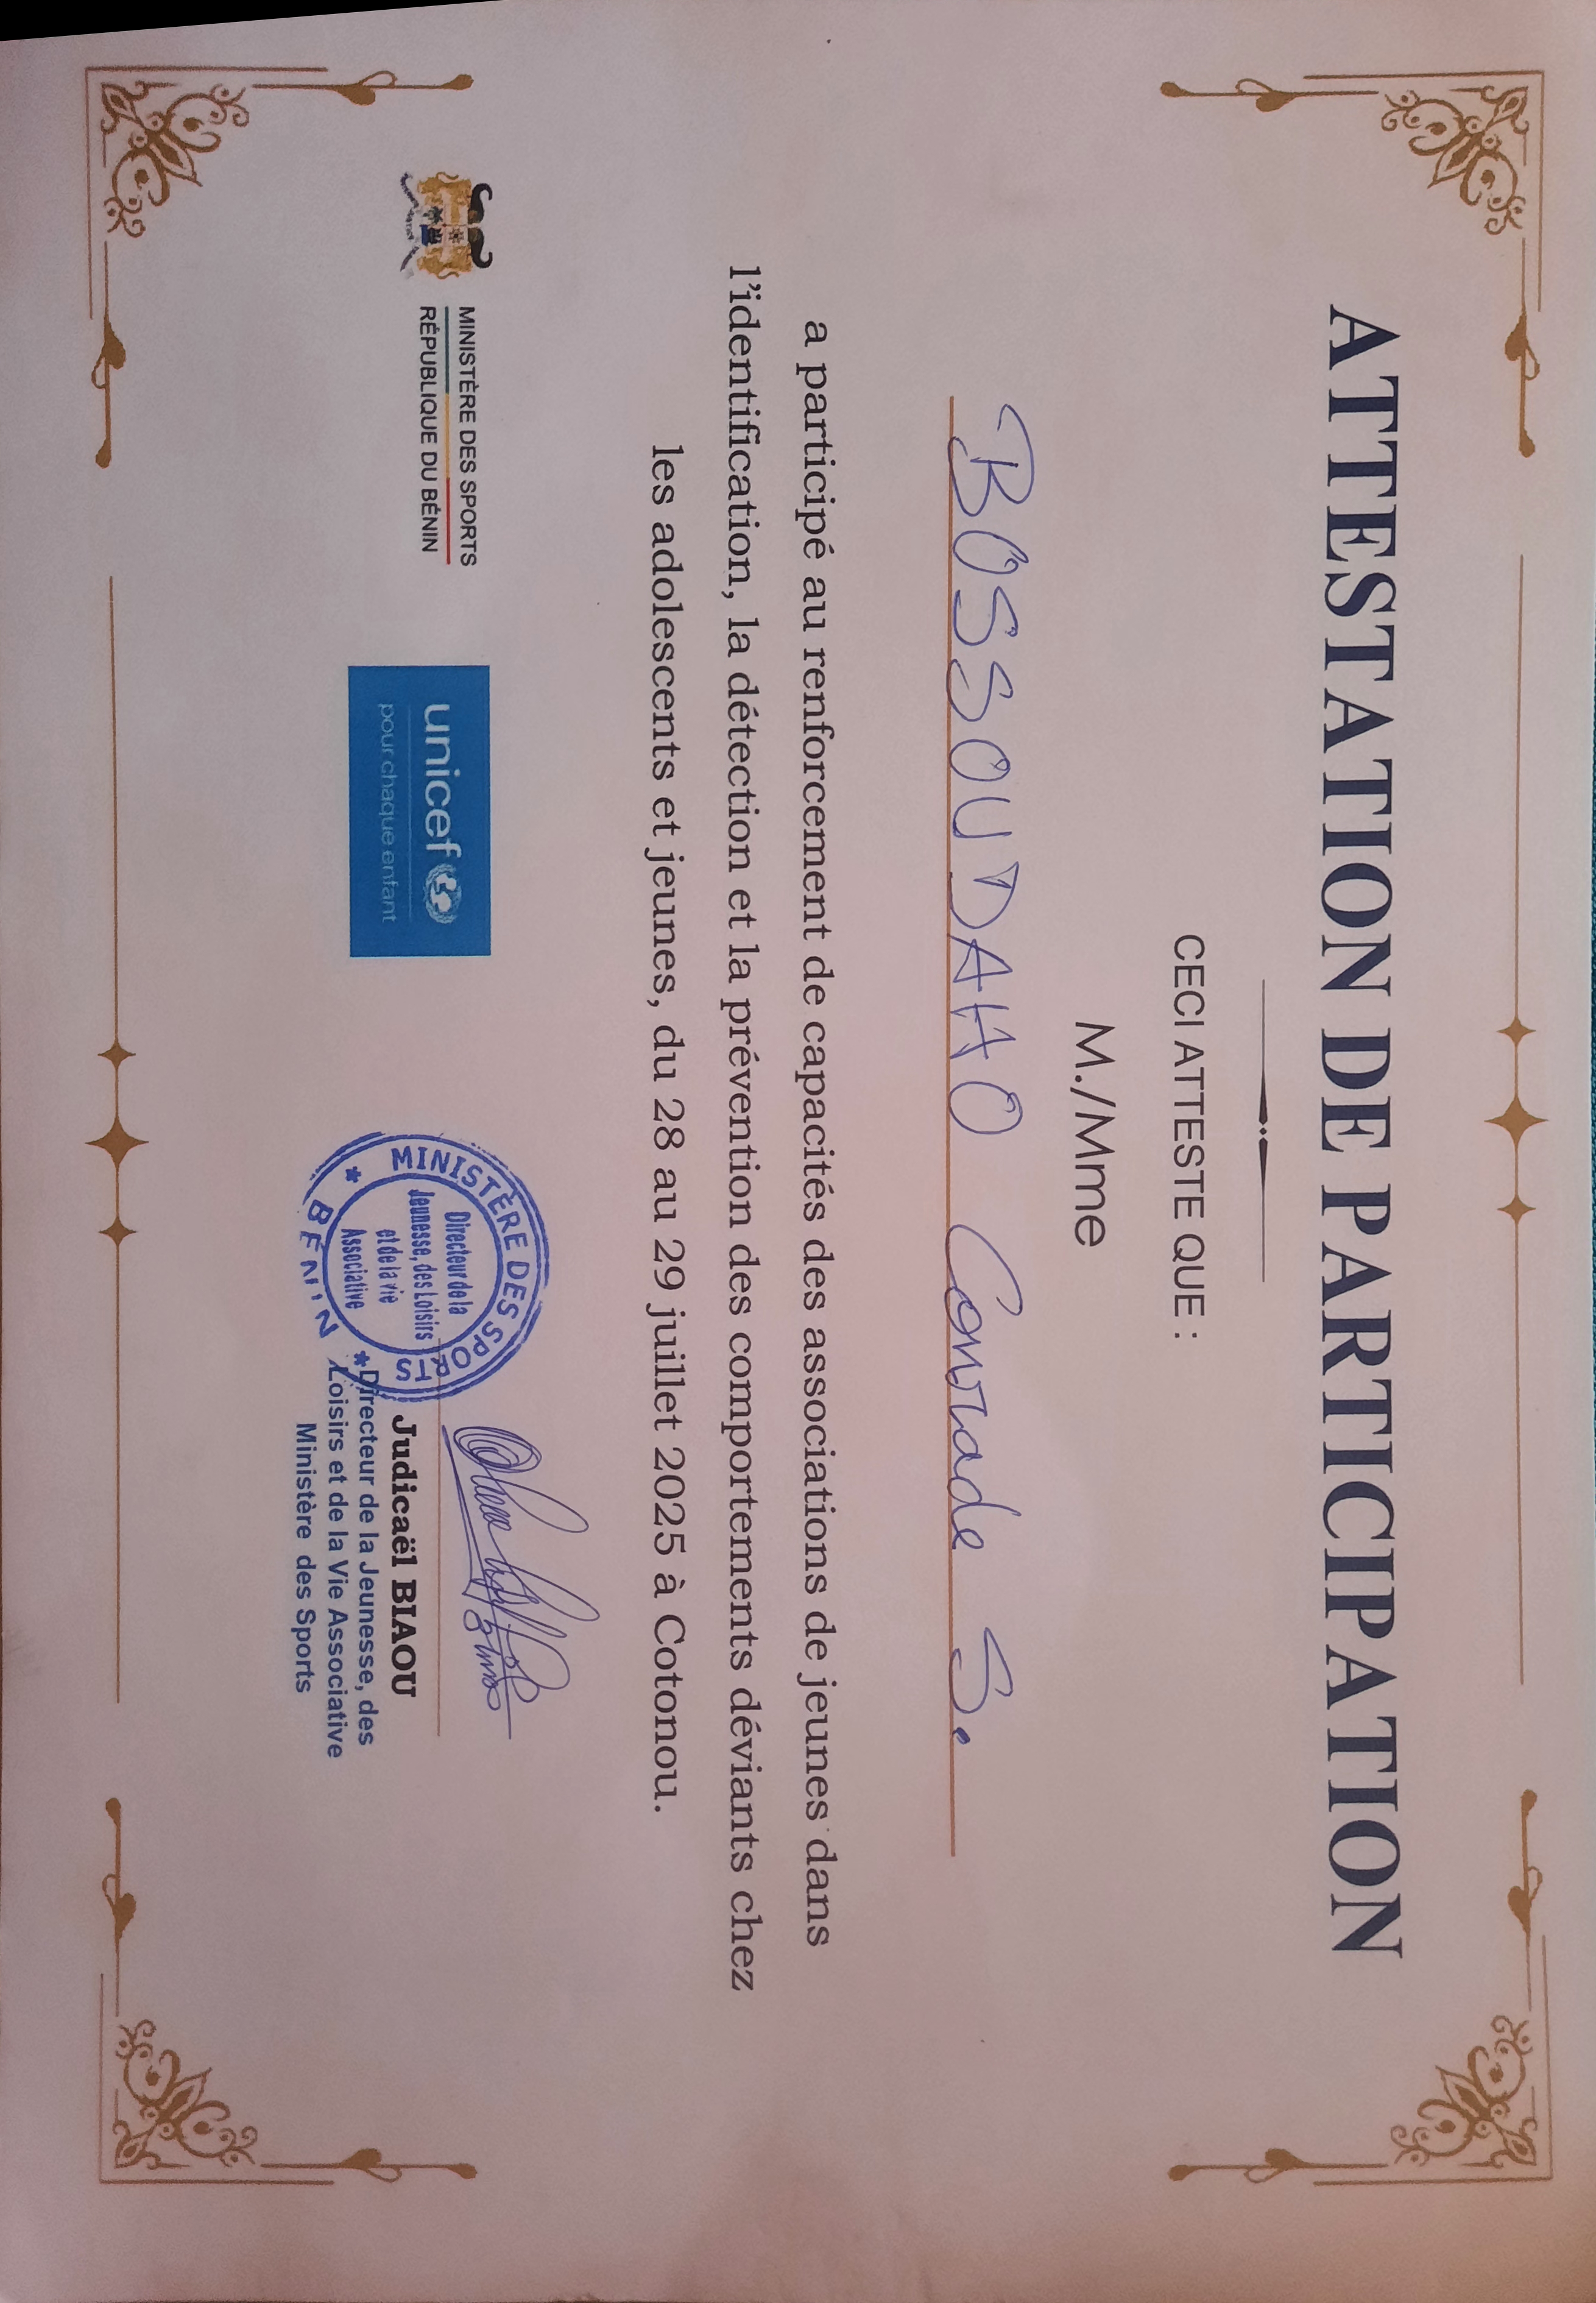 ATTESTATION DE PARTICIPATION
CECI ATTESTE QUE :
M./Mme
BOSSOUDAHO Conrade S.
a participé au renforcement de capacités des associations de jeunes dans
l'identification, la détection et la prévention des comportements déviants chez
les adolescents et jeunes, du 28 au 29 juillet 2025 à Cotonou.
MINISTÈRE DES SPORTS
RÉPUBLIQUE DU BÉNIN
unicef
pour chaque enfant
MINISTÈRE DES SPORTS
Directeur de la
Jeunesse, des Loisirs
et de la vie
Associative
* BÉNIN *
Judicaël BIAOU
Directeur de la Jeunesse, des
Loisirs et de la Vie Associative
Ministère des Sports